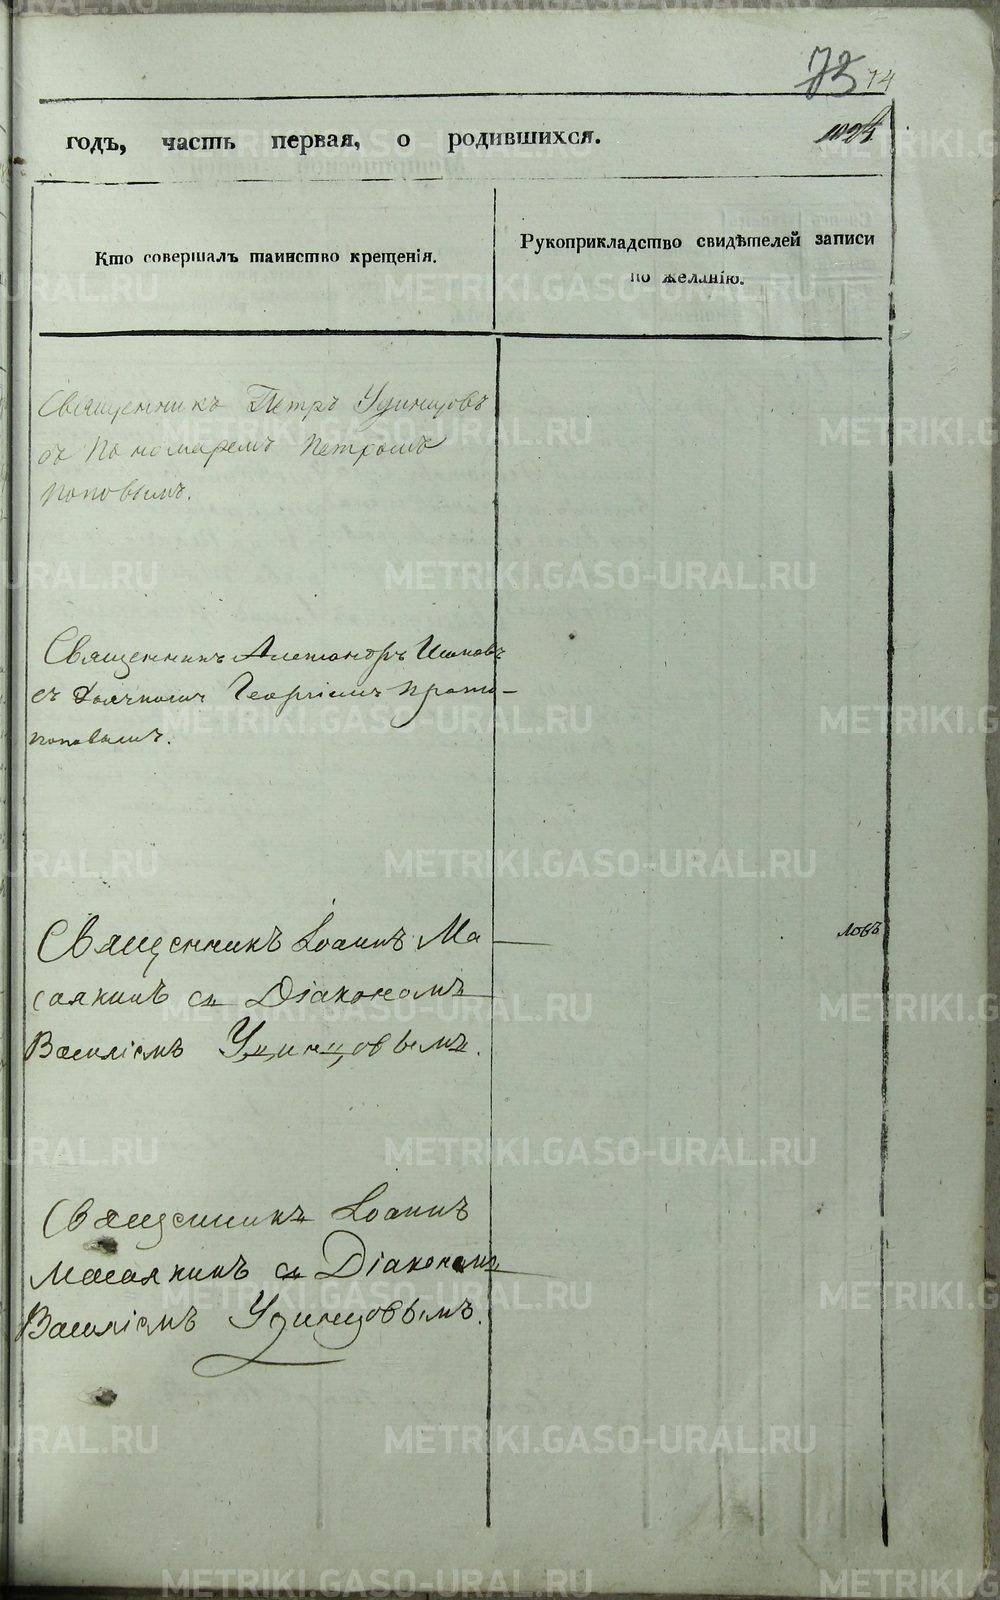 73 74
годъ, часть первая, о родившихся.
Кто совершалъ таинство крещенія.
Рукоприкладство свидѣтелей записи
по желанію.
Священникъ Петръ Удинцовъ
съ Пономаремъ Петромъ
Поповымъ.
Священникъ Александръ
съ Дьячкомъ Георгіемъ Прото-
поповымъ.
Священникъ Іоаннъ Ма
съ Діакономъ
Василіемъ Удинцовымъ.
Священникъ Іоаннъ
съ Діакономъ
Василіемъ Удинцовымъ.
ловъ
METRIKI.GASO-URAL.RU